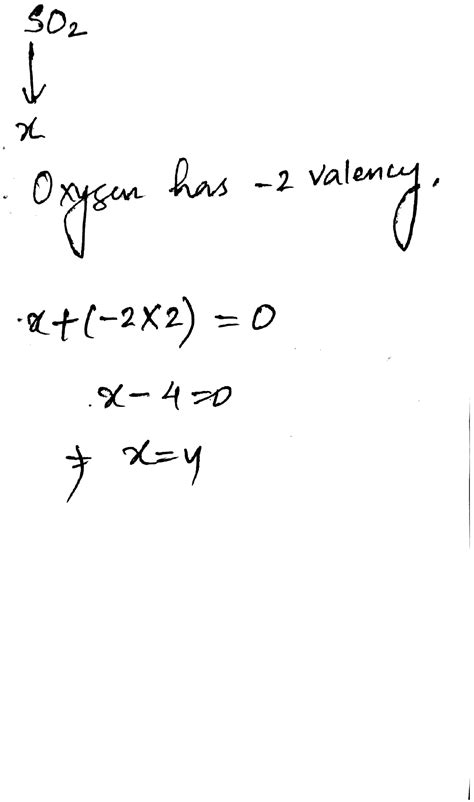 SO₂
↓
x
Oxygen has -2 valency.
x+(-2×2) = 0
x-4=0
⇒ x=4